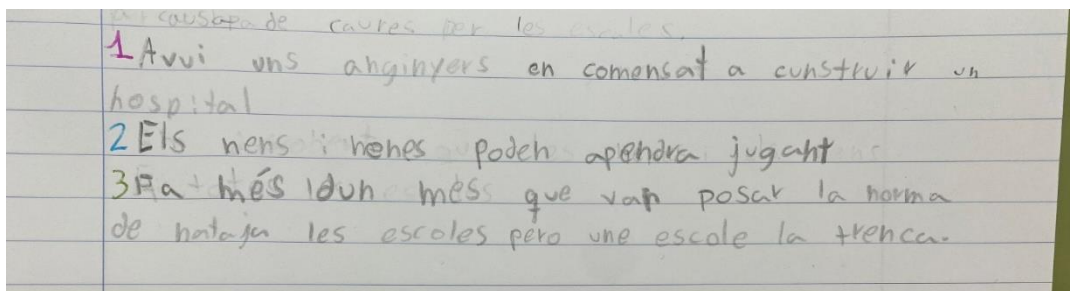 causa de caures per les escales.
1 Avui uns anginyers en comensat a cunstruir un
hospital
2 Els nens i nenes poden apendra jugant
3 Fa més dun mes que van posar la norma
de nataja les escoles pero une escole la trenca.